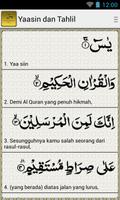 Yaasin dan Tahlil
يٰسٓ ۝١
1. Yaa siin
وَالْقُرْاٰنِ الْحَكِيْمِ ۝٢
2. Demi Al Quran yang penuh hikmah,
اِنَّكَ لَمِنَ الْمُرْسَلِيْنَ ۝٣
3. Sesungguhnya kamu salah seorang dari
rasul-rasul,
عَلٰى صِرَاطٍ مُّسْتَقِيْمٍ ۝٤
4. (yang berada) diatas jalan yang lurus,